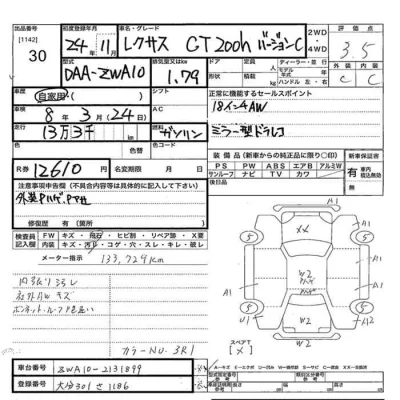 出品番号 初度登録年月 車名・グレード 2WD・4WD 評価点
[1142]
30 24年11月 レクサス CT200h バージョンC 3.5
型式 排気量又はkw ドア 定員 人 ディーラー・並行 外装 内装
DAA-ZWA10 1.79 形状 積載 kg モデル年式 年 C C
車歴 シフト 正常に機能するセールスポイント
自家用
車検 AC 18インチAW
8年3月(24日)
走行 燃料 ミラー型ドラレコ
13万3千km ガソリン
色 色替 元色 装備品(新車からの純正品に限り〇印) 新車保証書
R券 12610円 名変期限 月 日 PS PW エアB アルミW 有
サンルーフ ナビ TV カワ 車内 取込無効
注意事項申告欄(不具合内容等は具体的に記入して下さい) 後日品
外装Pハゲ.Pアせ
修復歴 有(箇所)
検査員記入欄 FW キズ・飛石・ヒビ割・リペア跡・X要
内装 キズ・汚れ・コゲ・穴・スレ・キレ・破レ
メーター指示 133,729km
内張りヨゴレ
社外AWキズ
ボンネット・ルーフP色追い
カラーNO.3R1
車台番号 ZWA10-2131899
登録番号 大分301さ1186
A1
XX
5
5
A1
A1
W2 Pハゲ
A1
W2
U1
A12
5
5
W2
スペアT
[メ]
A1